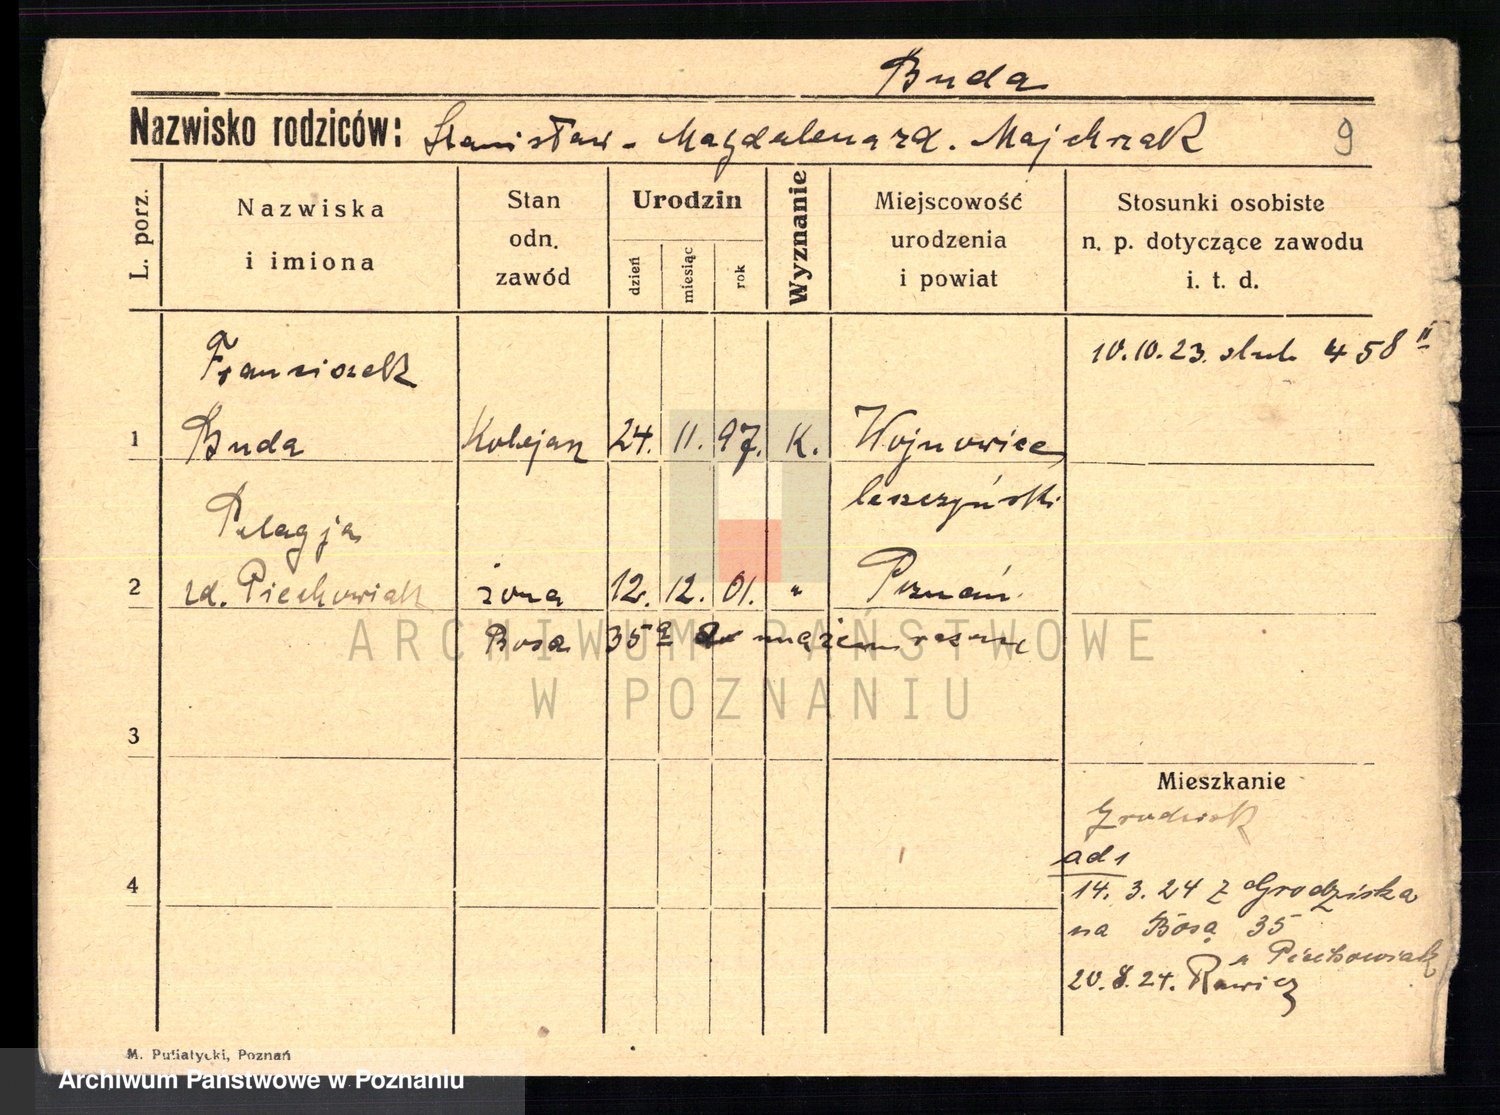 Buda
Nazwisko rodziców: Stanisław - Magdalena zd. Majchrzak 9
L. porz.
Nazwiska
i imiona
Stan
odn.
zawód
Urodzin
dzień
miesiąc
rok
Wyznanie
Miejscowość
urodzenia
i powiat
Stosunki osobiste
n. p. dotyczące zawodu
i. t. d.
Franciszek 10.10.23. ślub 458 II
1 Buda Kolejarz 24. 11. 97. K. Wojnowice
leszczyński
Pelagja
2 zd. Piechowiak żona 12. 12. 01. " Poznań.
Bosa 35a mężem razem
ARCHIWUM PAŃSTWOWE
W POZNANIU
3
Mieszkanie
Grodzisk
ad 1
4
14. 3. 24 z Grodziska
na Bosą 35
u Piechowiak
20. 8. 24. Rawicz
M. Putiatycki, Poznań
Archiwum Państwowe w Poznaniu